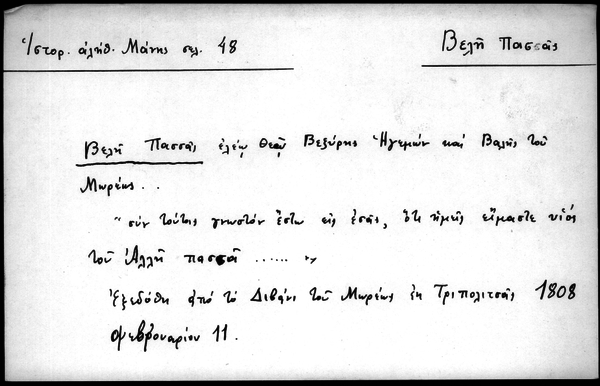 Ἱστορ. ἀλήθ. Μάνης σελ. 48
Βελῆ Πασσᾶς
Βελῆ Πασσᾶς ἐλέῳ Θεοῦ Βεζύρης Ἡγεμών καὶ Βαλῆς τοῦ
Μωρέως . .
"σύν τούτοις γνωστόν ἔστω εἰς ἐσᾶς, ὅτι ἡμεῖς εἴμαστε υἱός
τοῦ Ἀλλῆ πασσᾶ ...... "
Ἐξεδόθη ἀπό τό Διβάνι τοῦ Μωρέως ἐκ Τριπολιτσᾶς 1808
Φεβρουαρίου 11.